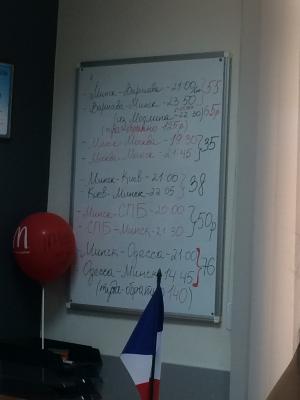 - Минск-Варшава-21:00 } 55
- Варшава-Минск-23:50
(из Модлина-22:30) 65р
(туда-обратно 125р)
- Минск-Москва-19:30 } 35
- Москва-Минск-21:45
- Минск-Киев-21:00 } 38
Киев-Минск-22:05
- Минск-СПБ-20:00 } 50р
- СПБ-Минск-21:30
- Минск-Одесса-21:00 } 76
Одесса-Минск-14:45
(туда-обратно 140)
m